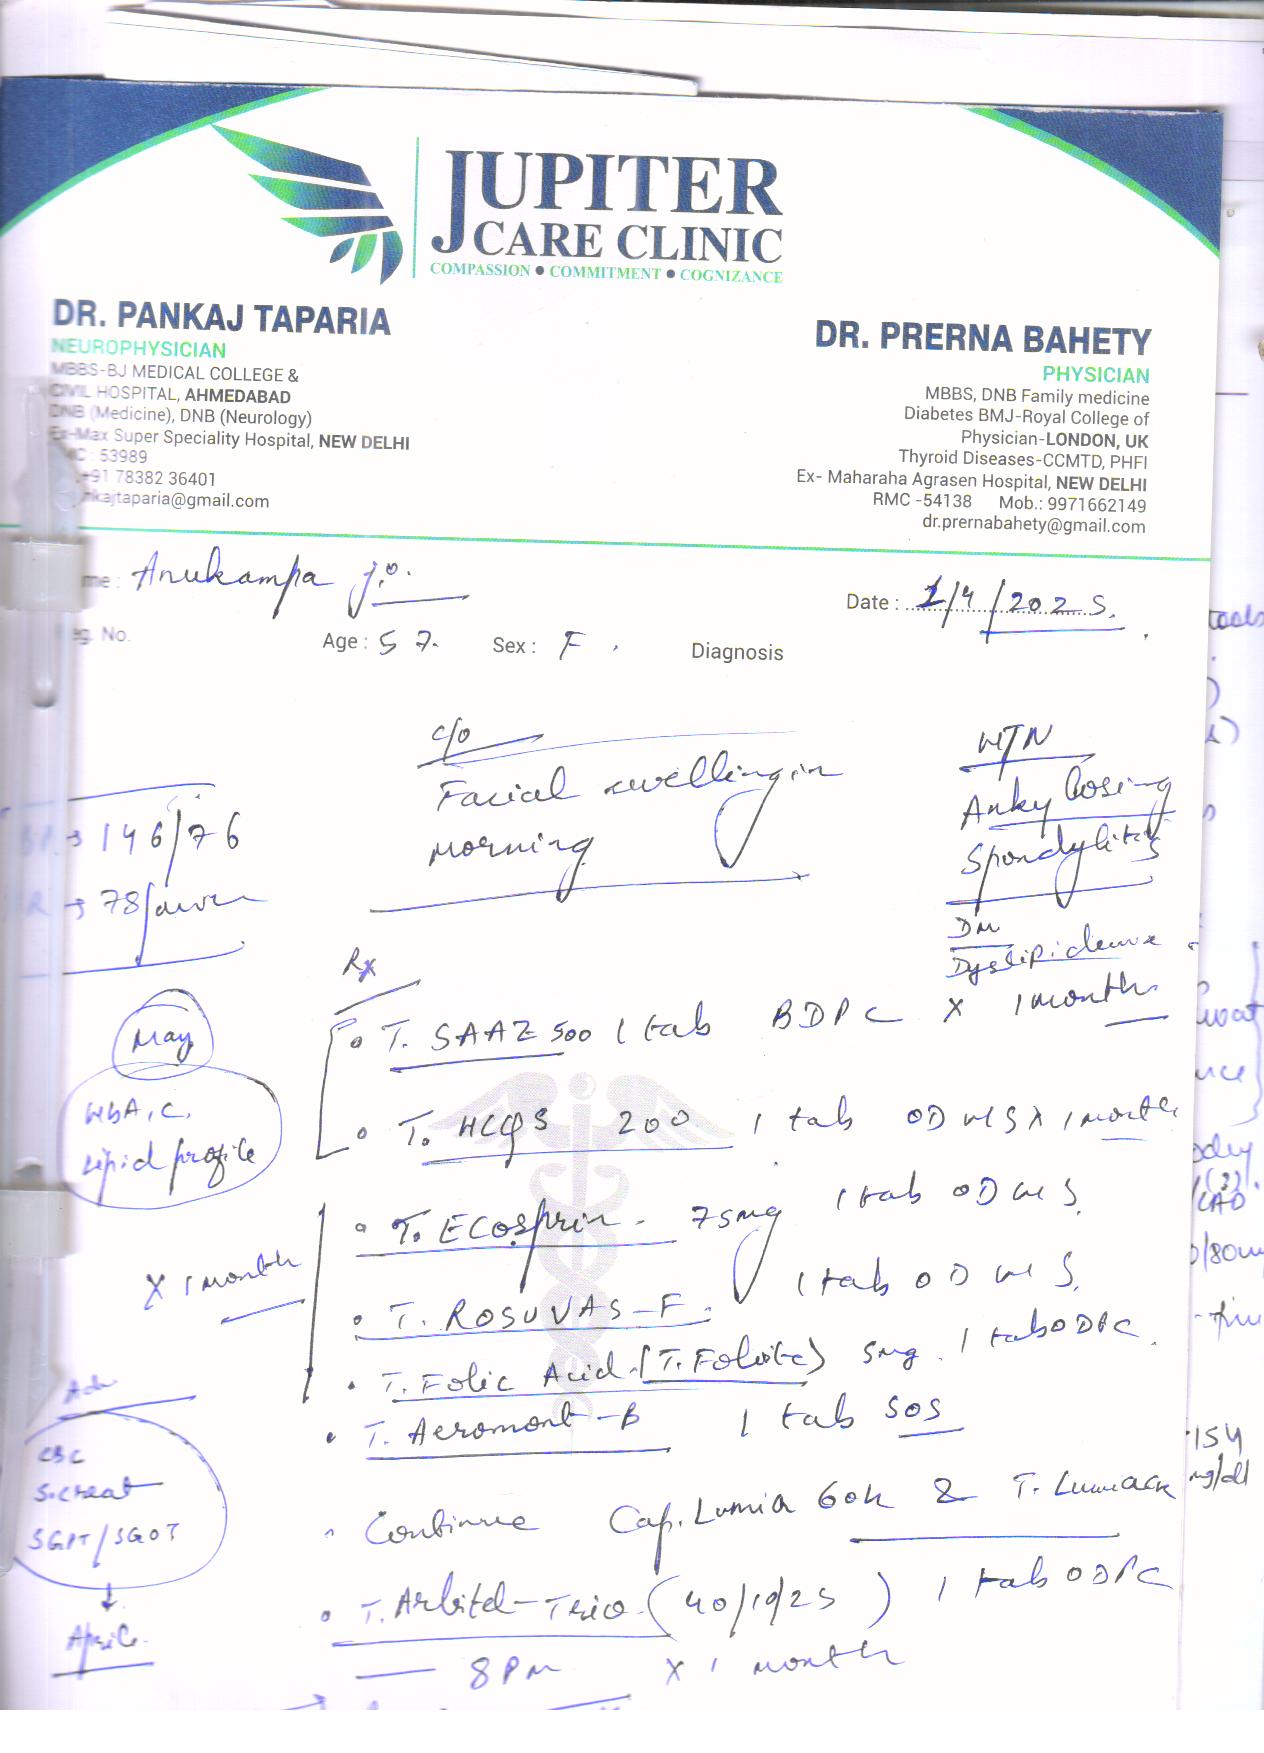 JUPITER
CARE CLINIC
COMPASSION ● COMMITMENT ● COGNIZANCE
DR. PANKAJ TAPARIA
NEUROPHYSICIAN
MBBS-BJ MEDICAL COLLEGE &
CIVIL HOSPITAL, AHMEDABAD
DNB (Medicine), DNB (Neurology)
Ex-Max Super Speciality Hospital, NEW DELHI
53989
+91 78382 36401
kajtaparia@gmail.com
DR. PRERNA BAHETY
PHYSICIAN
MBBS, DNB Family medicine
Diabetes BMJ-Royal College of
Physician-LONDON, UK
Thyroid Diseases-CCMTD, PHFI
Ex- Maharaha Agrasen Hospital, NEW DELHI
RMC -54138 Mob.: 9971662149
dr.prernabahety@gmail.com
me : Anukampa ji.
Date : 1/4/2025.
eg. No. Age : 57. Sex : F. Diagnosis
c/o
Facial swelling in
morning
HTN
Ankylosing
Spondylitis
DM
Dyslipidemia
BP → 146/76
HR → 78/
Rx
• T. SAAZ 500 1 tab BDPC X 1 month
• T. HCQS 200 1 tab OD HS X 1 month
May
HbA1C.
Lipid profile
• T. Ecosprin - 75mg 1 tab OD HS.
X 1 month
• T. ROSUVAS-F. 1 tab OD HS.
• T. Folic Acid (T. Folvite) 5mg. 1 tab ODPC.
• T. Aeromont-B 1 tab SOS
Adv
CBC
S.creat
SGPT/SGOT
↓
April
• Continue Cap. Lumia 60k & T. Lumiack
• T. Arbitel-Trio (40/10/25) 1 tab ODPC
— 8 PM X 1 month
tools
CAD
154
mg/dl